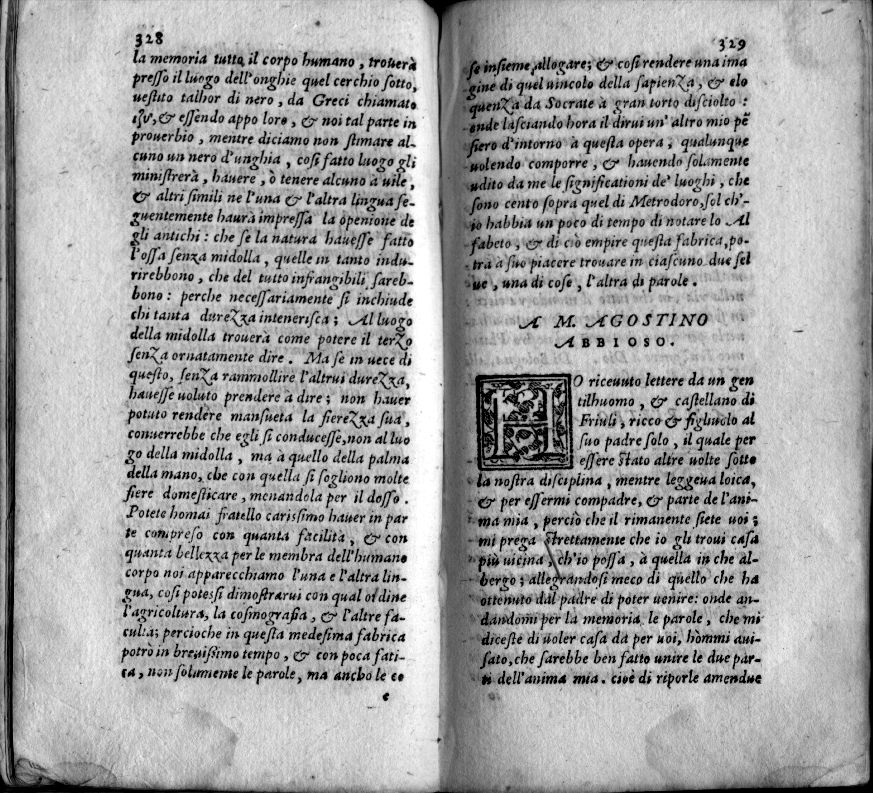 328
la memoria tutto il corpo humano, trouerà
preſſo il luogo dell'onghie quel cerchio ſotto,
ueſtito talhor di nero, da Greci chiamato
& eſſendo appo loro, & noi tal parte in
prouerbio, mentre diciamo non ſtimare al-
cuno un nero d'unghia, coſi fatto luogo gli
miniſtrerà, hauere, ò tenere alcuno à uile,
& altri ſimili ne l'una & l'altra lingua ſe-
guentemente haurà impreſſa la openione de
gli antichi: che ſe la natura haueſſe fatto
l'oſſa ſenza midolla, quelle in tanto indu-
rirebbono, che del tutto infrangibili ſareb-
bono: perche neceſſariamente ſi inchiude
chi tanta durezza inteneriſca; Al luogo
della midolla trouerà come potere il terzo
ſenza ornatamente dire. Ma ſe in uece di
queſto, ſenza rammollire l'altrui durezza,
haueſſe uoluto prendere à dire; non hauer
potuto rendere manſueta la fierezza ſua,
conuerrebbe che egli ſi conduceſſe, non al luo
go della midolla, ma à quello della palma
della mano, che con quella ſi ſogliono molte
fiere domeſticare, menandola per il doſſo.
Potete homai fratello cariſſimo hauer in par
te compreſo con quanta facilità, & con
quanta bellezza per le membra dell'humano
corpo noi apparecchiamo l'una e l'altra lin-
gua, coſi poteſſi dimoſtrarui con qual ordine
l'agricoltura, la coſmografia, & l'altre fa-
cultà; percioche in queſta medeſima fabrica
potrò in breuiſſimo tempo, & con poca fati-
ca, non ſolamente le parole, ma ancho le co
e
329
ſe inſieme allogare; & coſi rendere una ima
gine di quel uincolo della ſapienza, & elo
quenza da Socrate à gran torto diſciolto:
onde laſciando hora il dirui un'altro mio pē
ſiero d'intorno à queſta opera, qualunque
uolendo comporre, & hauendo ſolamente
udito da me le ſignificationi de' luoghi, che
ſono cento ſopra quel di Metrodoro, ſol ch'-
io habbia un poco di tempo di notare lo Al
fabeto, & di ciò empire queſta fabrica, po-
trà a ſuo piacere trouare in ciaſcuno due ſel
ue, una di coſe, l'altra di parole.
A M. AGOSTINO
ABBIOSO.
HO riceuuto lettere da un gen
tilhuomo, & caſtellano di
Friuli, ricco & figliuolo al
ſuo padre ſolo, il quale per
eſſere ſtato altre uolte ſotto
la noſtra diſciplina, mentre leggeua loica,
& per eſſermi compadre, & parte de l'ani-
ma mia, perciò che il rimanente ſiete uoi;
mi prega ſtrettamente che io gli troui caſa
più uicina, ch'io poſſa, à quella in che al-
bergo; allegrandoſi meco di quello che ha
ottenuto dal padre di poter uenire: onde an-
dandomi per la memoria le parole, che mi
diceſte di uoler caſa da per uoi, hòmmi aui-
ſato, che ſarebbe ben fatto unire le due par-
ti dell'anima mia, cioè di riporle amendue